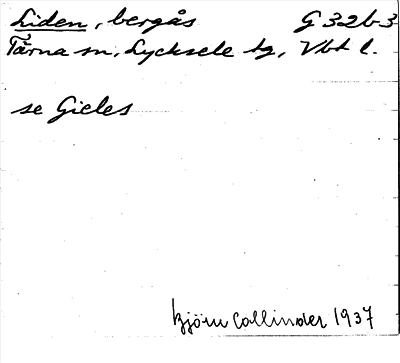 Liden, bergås G 32b-3
Tärna sn, Lycksele tg, Vbt l.
se Gieles
Björn Collinder 1937